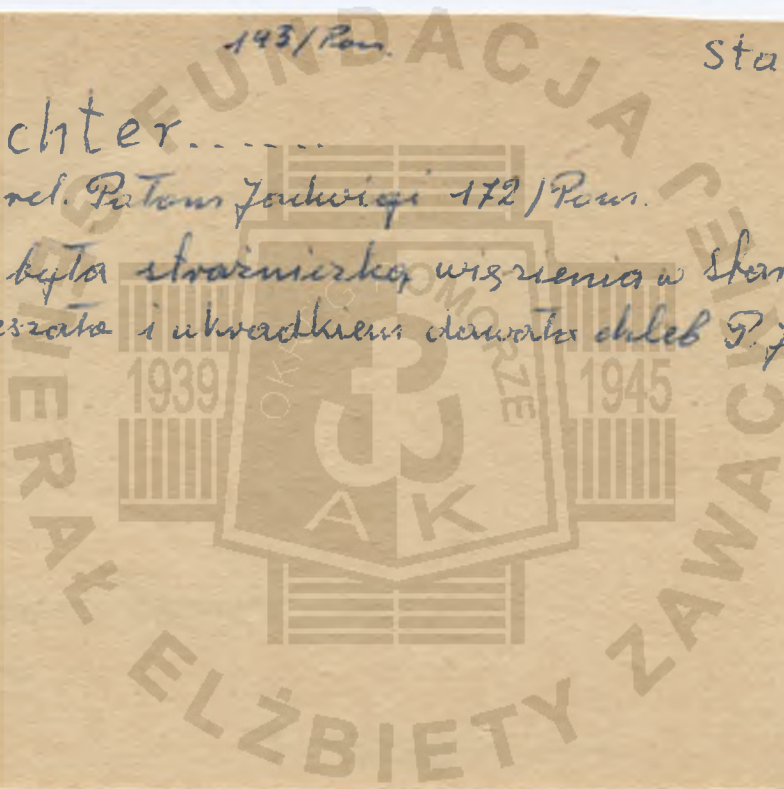 143/Pom.
Sta
chter......
rel. Patom Jadwigi 172/Pom.
była strażniczką więzienia w Star
eszała i ukradkiem dawała chleb P. J
FUNDACJA GENERAŁ ELŻBIETY ZAWACKIEJ
OKRĘG POMORZE
1939 1945
AK